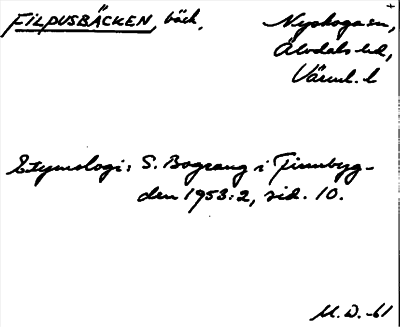 FILPUSBÄCKEN, bäck,
Nyskoga sn,
Älvdals hd,
Värml. l
Etymologi: S. Bograng i Finnbyg-
den 1953:2, sid. 10.
M. D. -61